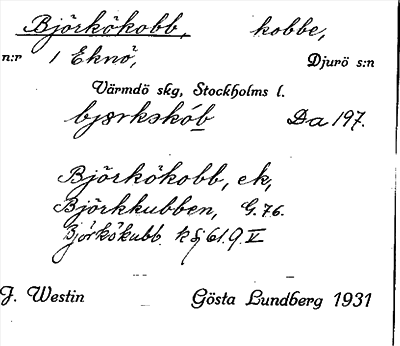 Björkökobb, kobbe,
n:r 1 Eknö, Djurö s:n
Värmdö skg, Stockholms l.
bjœrkskób Da 197.
Björkökobb, ek,
Björkkubben, G. 76.
Björkökubb. k § 61.9. V
J. Westin Gösta Lundberg 1931